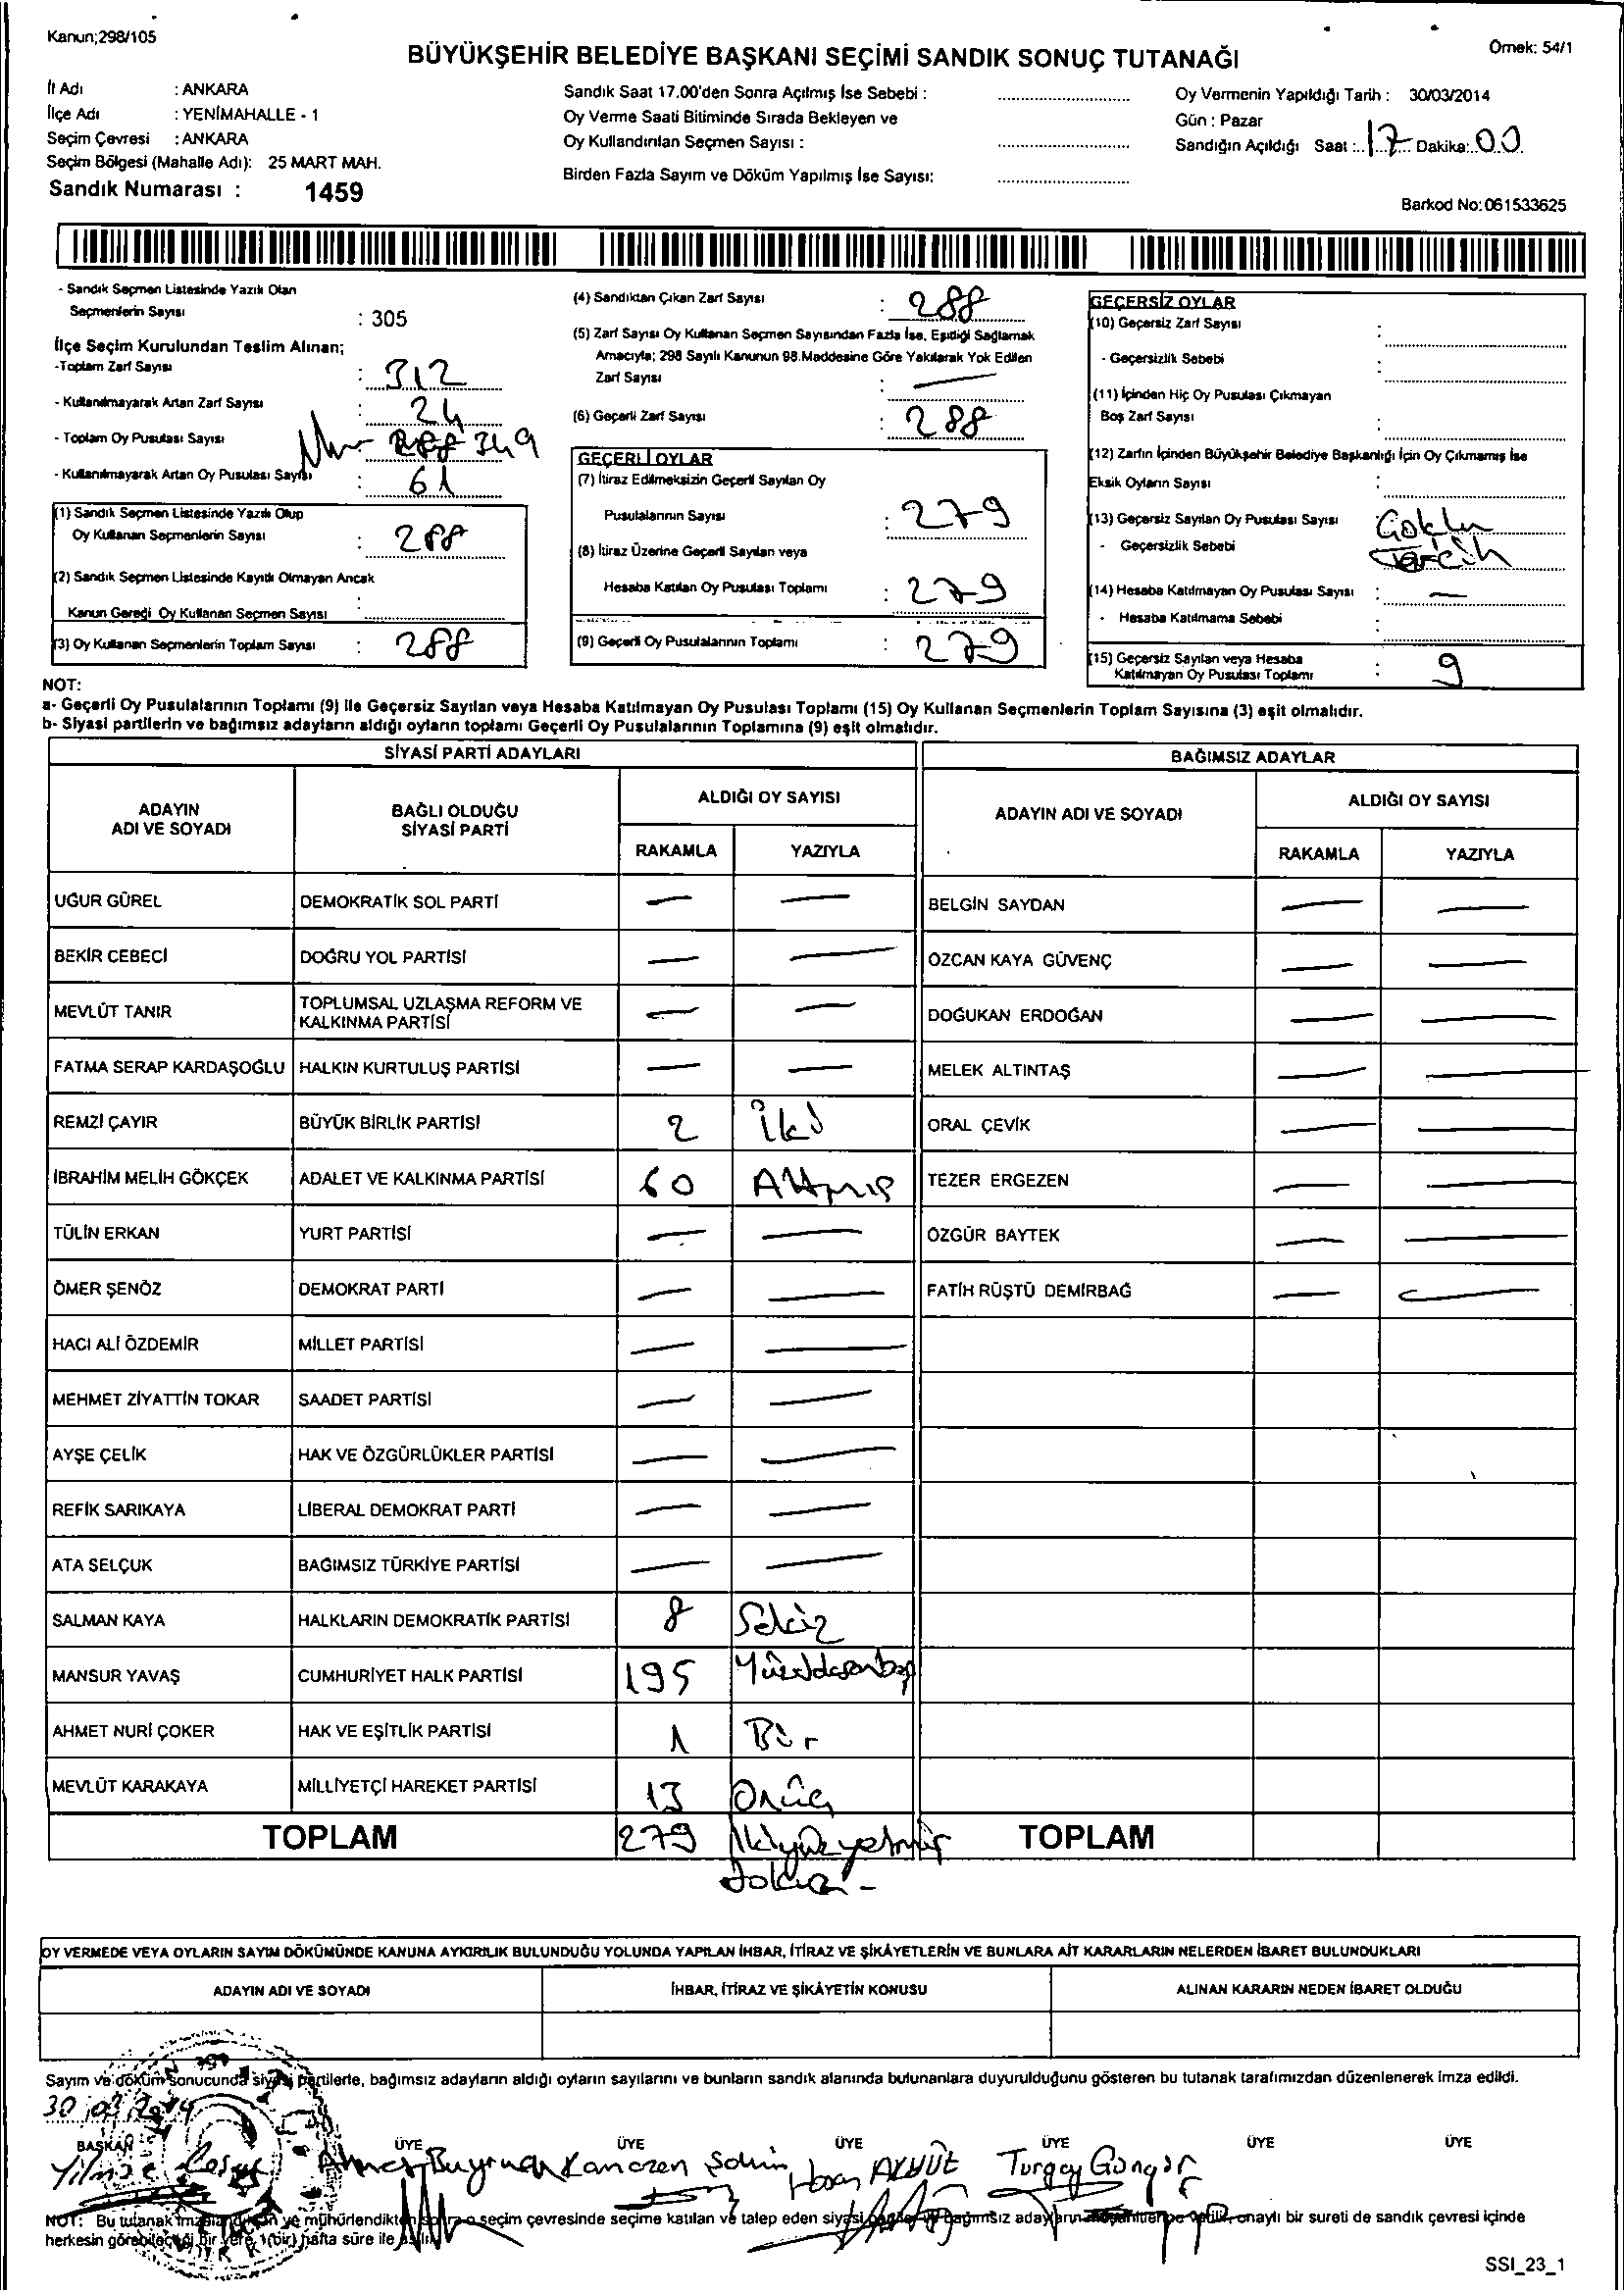 Kanun;298/105
BÜYÜKŞEHİR BELEDİYE BAŞKANI SEÇİMİ SANDIK SONUÇ TUTANAĞI
Örnek: 54/1
İl Adı : ANKARA
İlçe Adı : YENİMAHALLE - 1
Seçim Çevresi : ANKARA
Seçim Bölgesi (Mahalle Adı): 25 MART MAH.
Sandık Numarası : 1459
Sandık Saat 17.00'den Sonra Açılmış İse Sebebi :
Oy Verme Saati Bitiminde Sırada Bekleyen ve
Oy Kullandırılan Seçmen Sayısı :
Birden Fazla Sayım ve Döküm Yapılmış İse Sayısı:
Oy Vermenin Yapıldığı Tarih : 30/03/2014
Gün : Pazar
Sandığın Açıldığı Saat : 17 Dakika: 00
Barkod No:061533625
- Sandık Seçmen Listesinde Yazılı Olan
Seçmenlerin Sayısı : 305
İlçe Seçim Kurulundan Teslim Alınan;
-Toplam Zarf Sayısı : 312
- Kullanılmayarak Artan Zarf Sayısı : 24
- Toplam Oy Pusulası Sayısı : 288 349
- Kullanılmayarak Artan Oy Pusulası Sayısı : 61
(1) Sandık Seçmen Listesinde Yazılı Olup
Oy Kullanan Seçmenlerin Sayısı : 288
(2) Sandık Seçmen Listesinde Kayıtlı Olmayan Ancak
Kanun Gereği Oy Kullanan Seçmen Sayısı :
(3) Oy Kullanan Seçmenlerin Toplam Sayısı : 288
(4) Sandıktan Çıkan Zarf Sayısı : 288
(5) Zarf Sayısı Oy Kullanan Seçmen Sayısından Fazla İse, Eşitliği Sağlamak
Amacıyla; 298 Sayılı Kanunun 98.Maddesine Göre Yakılarak Yok Edilen
Zarf Sayısı : —
(6) Geçerli Zarf Sayısı : 288
GEÇERLİ OYLAR
(7) İtiraz Edilmeksizin Geçerli Sayılan Oy
Pusulalarının Sayısı : 279
(8) İtiraz Üzerine Geçerli Sayılan veya
Hesaba Katılan Oy Pusulası Toplamı : 279
(9) Geçerli Oy Pusulalarının Toplamı : 279
GEÇERSİZ OYLAR
(10) Geçersiz Zarf Sayısı :
- Geçersizlik Sebebi :
(11) İçinden Hiç Oy Pusulası Çıkmayan
Boş Zarf Sayısı :
(12) Zarfın İçinden Büyükşehir Belediye Başkanlığı İçin Oy Çıkmamış İse
Eksik Oyların Sayısı :
(13) Geçersiz Sayılan Oy Pusulası Sayısı : Çoklu
- Geçersizlik Sebebi : Tercih
(14) Hesaba Katılmayan Oy Pusulası Sayısı : —
- Hesaba Katılmama Sebebi :
(15) Geçersiz Sayılan veya Hesaba
Katılmayan Oy Pusulası Toplamı : 9
NOT:
a- Geçerli Oy Pusulalarının Toplamı (9) ile Geçersiz Sayılan veya Hesaba Katılmayan Oy Pusulası Toplamı (15) Oy Kullanan Seçmenlerin Toplam Sayısına (3) eşit olmalıdır.
b- Siyasi partilerin ve bağımsız adayların aldığı oyların toplamı Geçerli Oy Pusulalarının Toplamına (9) eşit olmalıdır.
SİYASİ PARTİ ADAYLARI
BAĞIMSIZ ADAYLAR
ADAYIN ADI VE SOYADI
BAĞLI OLDUĞU SİYASİ PARTİ
ALDIĞI OY SAYISI
RAKAMLA YAZIYLA
ADAYIN ADI VE SOYADI
ALDIĞI OY SAYISI
RAKAMLA YAZIYLA
UĞUR GÜREL DEMOKRATİK SOL PARTİ — — BELGİN SAYDAN — —
BEKİR CEBECİ DOĞRU YOL PARTİSİ — — ÖZCAN KAYA GÜVENÇ — —
MEVLÜT TANIR TOPLUMSAL UZLAŞMA REFORM VE KALKINMA PARTİSİ — — DOĞUKAN ERDOĞAN — —
FATMA SERAP KARDAŞOĞLU HALKIN KURTULUŞ PARTİSİ — — MELEK ALTINTAŞ — —
REMZİ ÇAYIR BÜYÜK BİRLİK PARTİSİ 2 İki ORAL ÇEVİK — —
İBRAHİM MELİH GÖKÇEK ADALET VE KALKINMA PARTİSİ 60 Altmış TEZER ERGEZEN — —
TÜLİN ERKAN YURT PARTİSİ — — ÖZGÜR BAYTEK — —
ÖMER ŞENÖZ DEMOKRAT PARTİ — — FATİH RÜŞTÜ DEMİRBAĞ — —
HACI ALİ ÖZDEMİR MİLLET PARTİSİ — —
MEHMET ZİYATTİN TOKAR SAADET PARTİSİ — —
AYŞE ÇELİK HAK VE ÖZGÜRLÜKLER PARTİSİ — —
REFİK SARIKAYA LİBERAL DEMOKRAT PARTİ — —
ATA SELÇUK BAĞIMSIZ TÜRKİYE PARTİSİ — —
SALMAN KAYA HALKLARIN DEMOKRATİK PARTİSİ 8 Sekiz
MANSUR YAVAŞ CUMHURİYET HALK PARTİSİ 195
AHMET NURİ ÇOKER HAK VE EŞİTLİK PARTİSİ 1 Bir
MEVLÜT KARAKAYA MİLLİYETÇİ HAREKET PARTİSİ 13 Onüç
TOPLAM 279 İkiyüzyetmiş TOPLAM
dokuz -
OY VERMEDE VEYA OYLARIN SAYIM DÖKÜMÜNDE KANUNA AYKIRILIK BULUNDUĞU YOLUNDA YAPILAN İHBAR, İTİRAZ VE ŞİKÂYETLERİN VE BUNLARA AİT KARARLARIN NELERDEN İBARET BULUNDUKLARI
ADAYIN ADI VE SOYADI İHBAR, İTİRAZ VE ŞİKÂYETİN KONUSU ALINAN KARARIN NEDEN İBARET OLDUĞU
Sayım ve döküm sonucunda siyasi partilerle, bağımsız adayların aldığı oyların sayılarını ve bunların sandık alanında bulunanlara duyurulduğunu gösteren bu tutanak tarafımızdan düzenlenerek imza edildi.
30/03/2014
BAŞKAN ÜYE ÜYE ÜYE ÜYE ÜYE ÜYE
Yılmaz Ahmet Kamozen Şahin Hasan AKYÜZ Turgay Güngör
NOT: Bu tutanak imzalandıktan ve mühürlendikten sonra o seçim çevresinde seçime katılan ve talep eden siyasi bağımsız onaylı bir sureti de sandık çevresi içinde
herkesin görebileceği bir yere, 1(bir) hafta süre ile asılır.
SSI_23_1